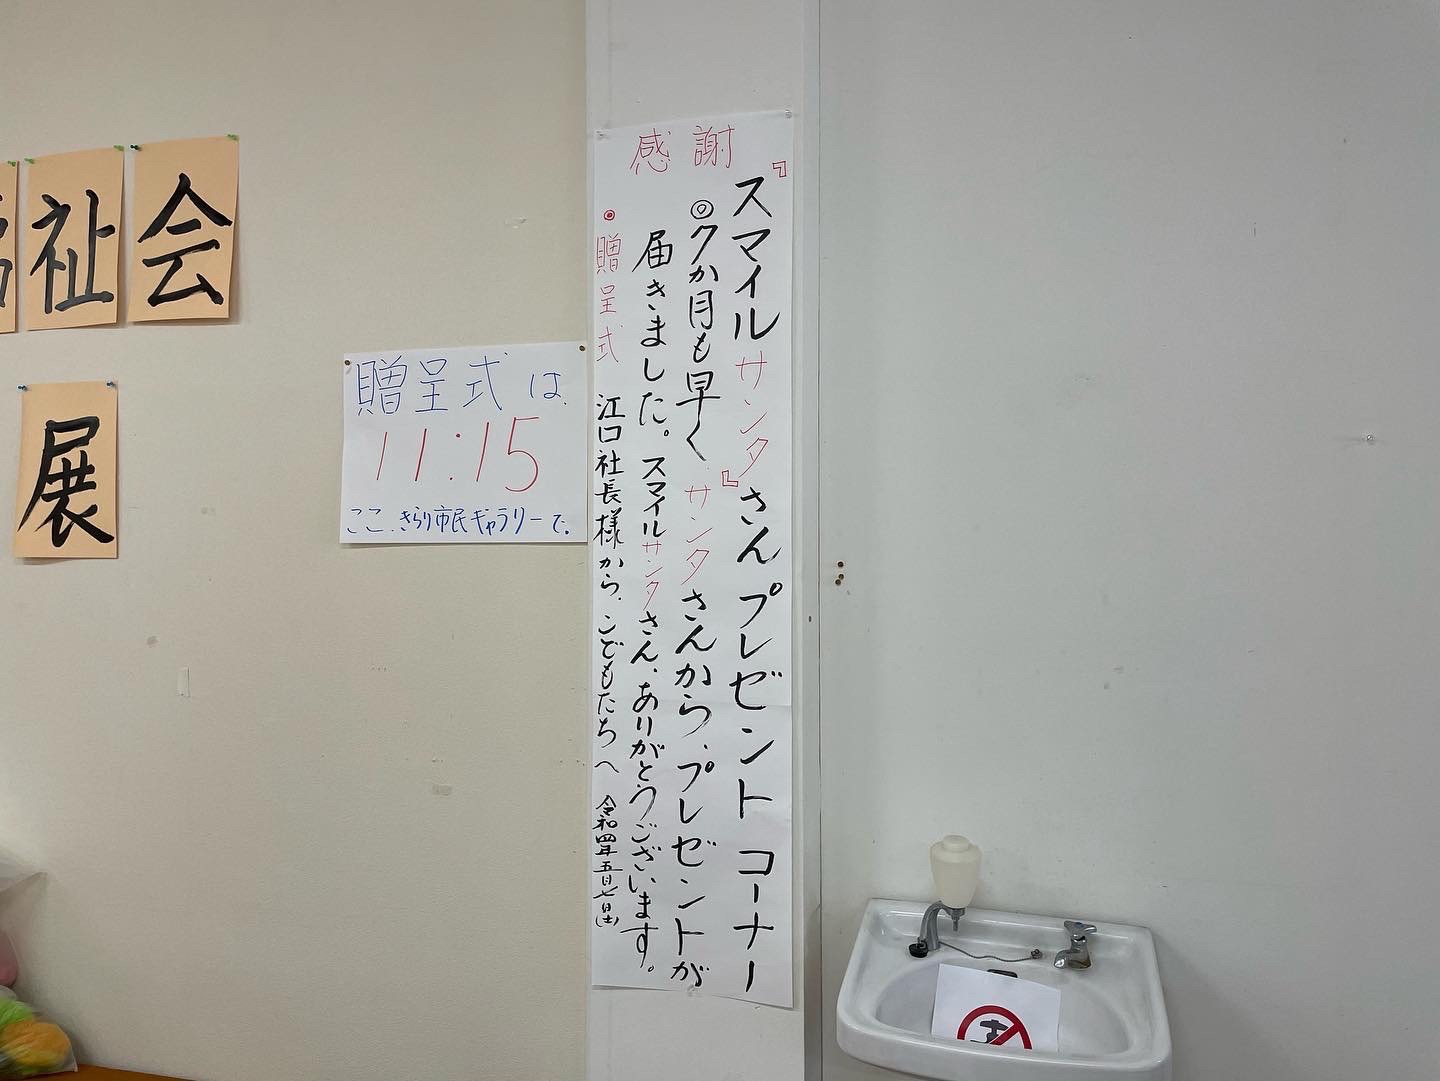 祉会
展
贈呈式は
11:15
ここ、きらり市民ギャラリーで。
感謝
『スマイルサンタ』さんプレゼントコーナー
◎7か月も早く、サンタさんから、プレゼントが
届きました。スマイルサンタさん、ありがとうございます。
◉贈呈式 江口社長様から、こどもたちへ 令和四年五月七日(土)